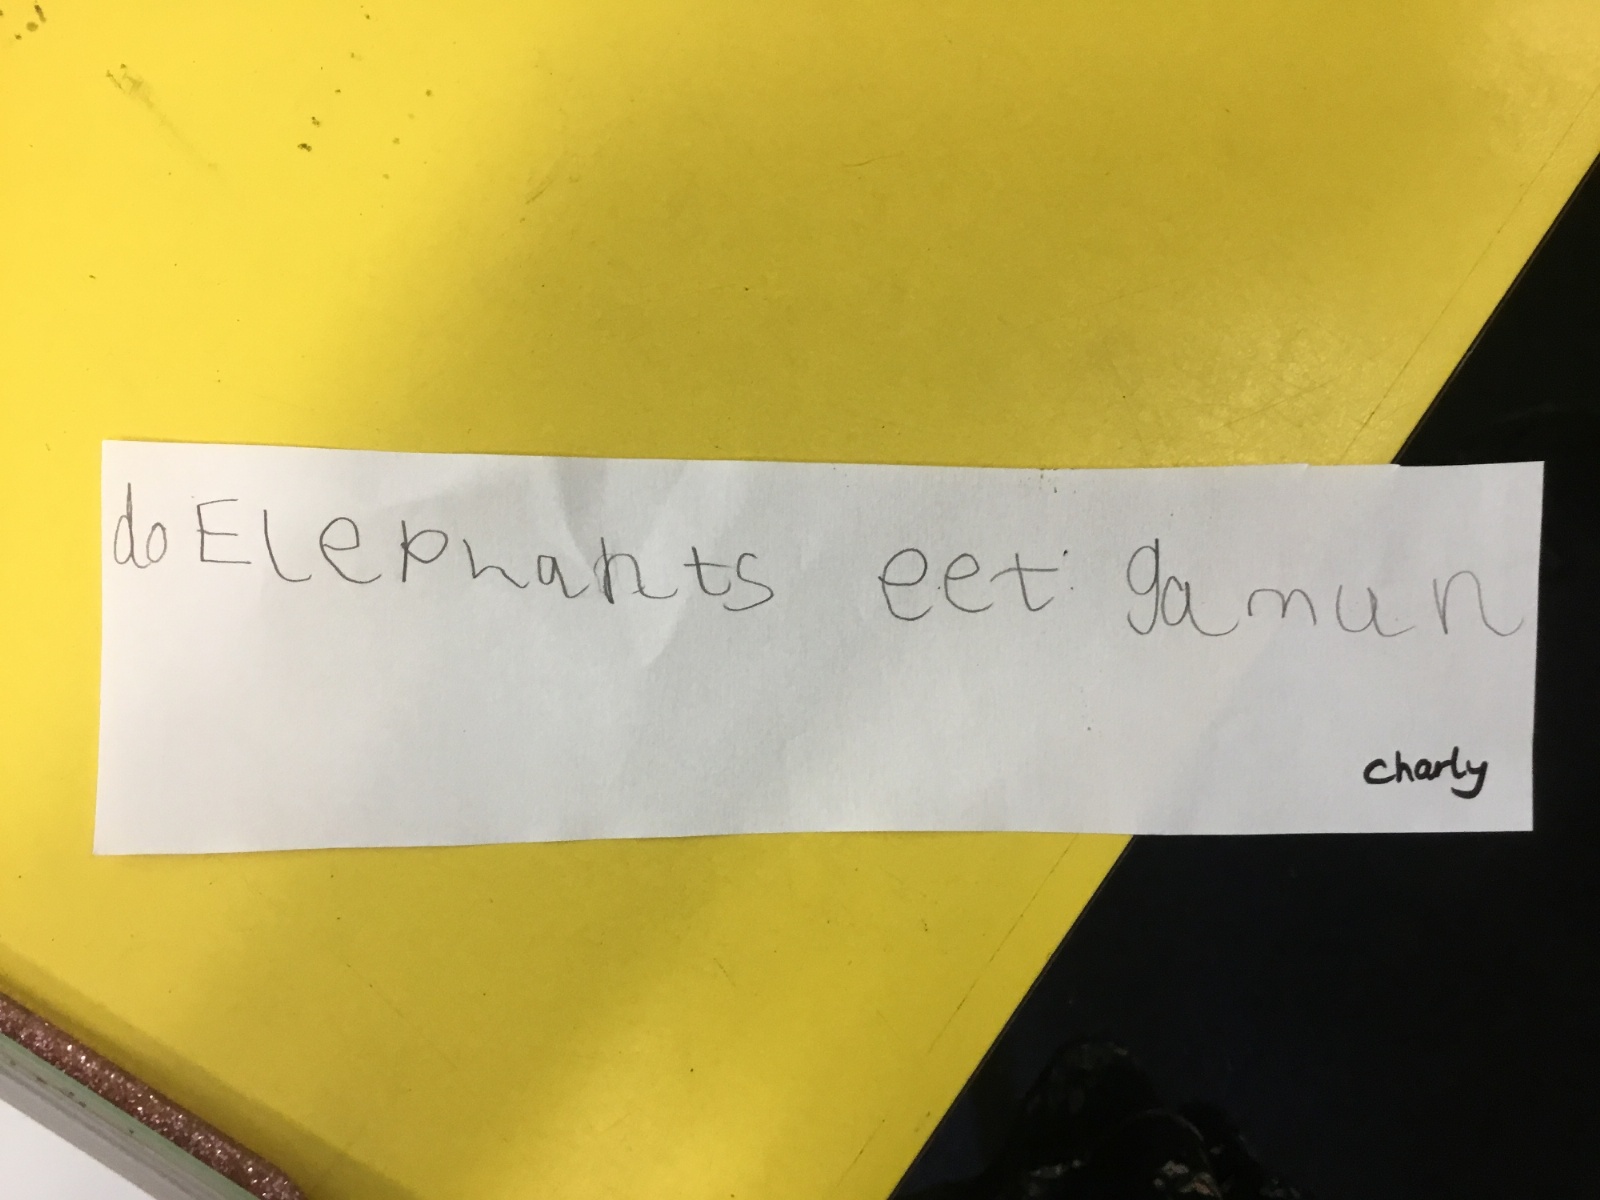 do Elephants eet gamun
Charly